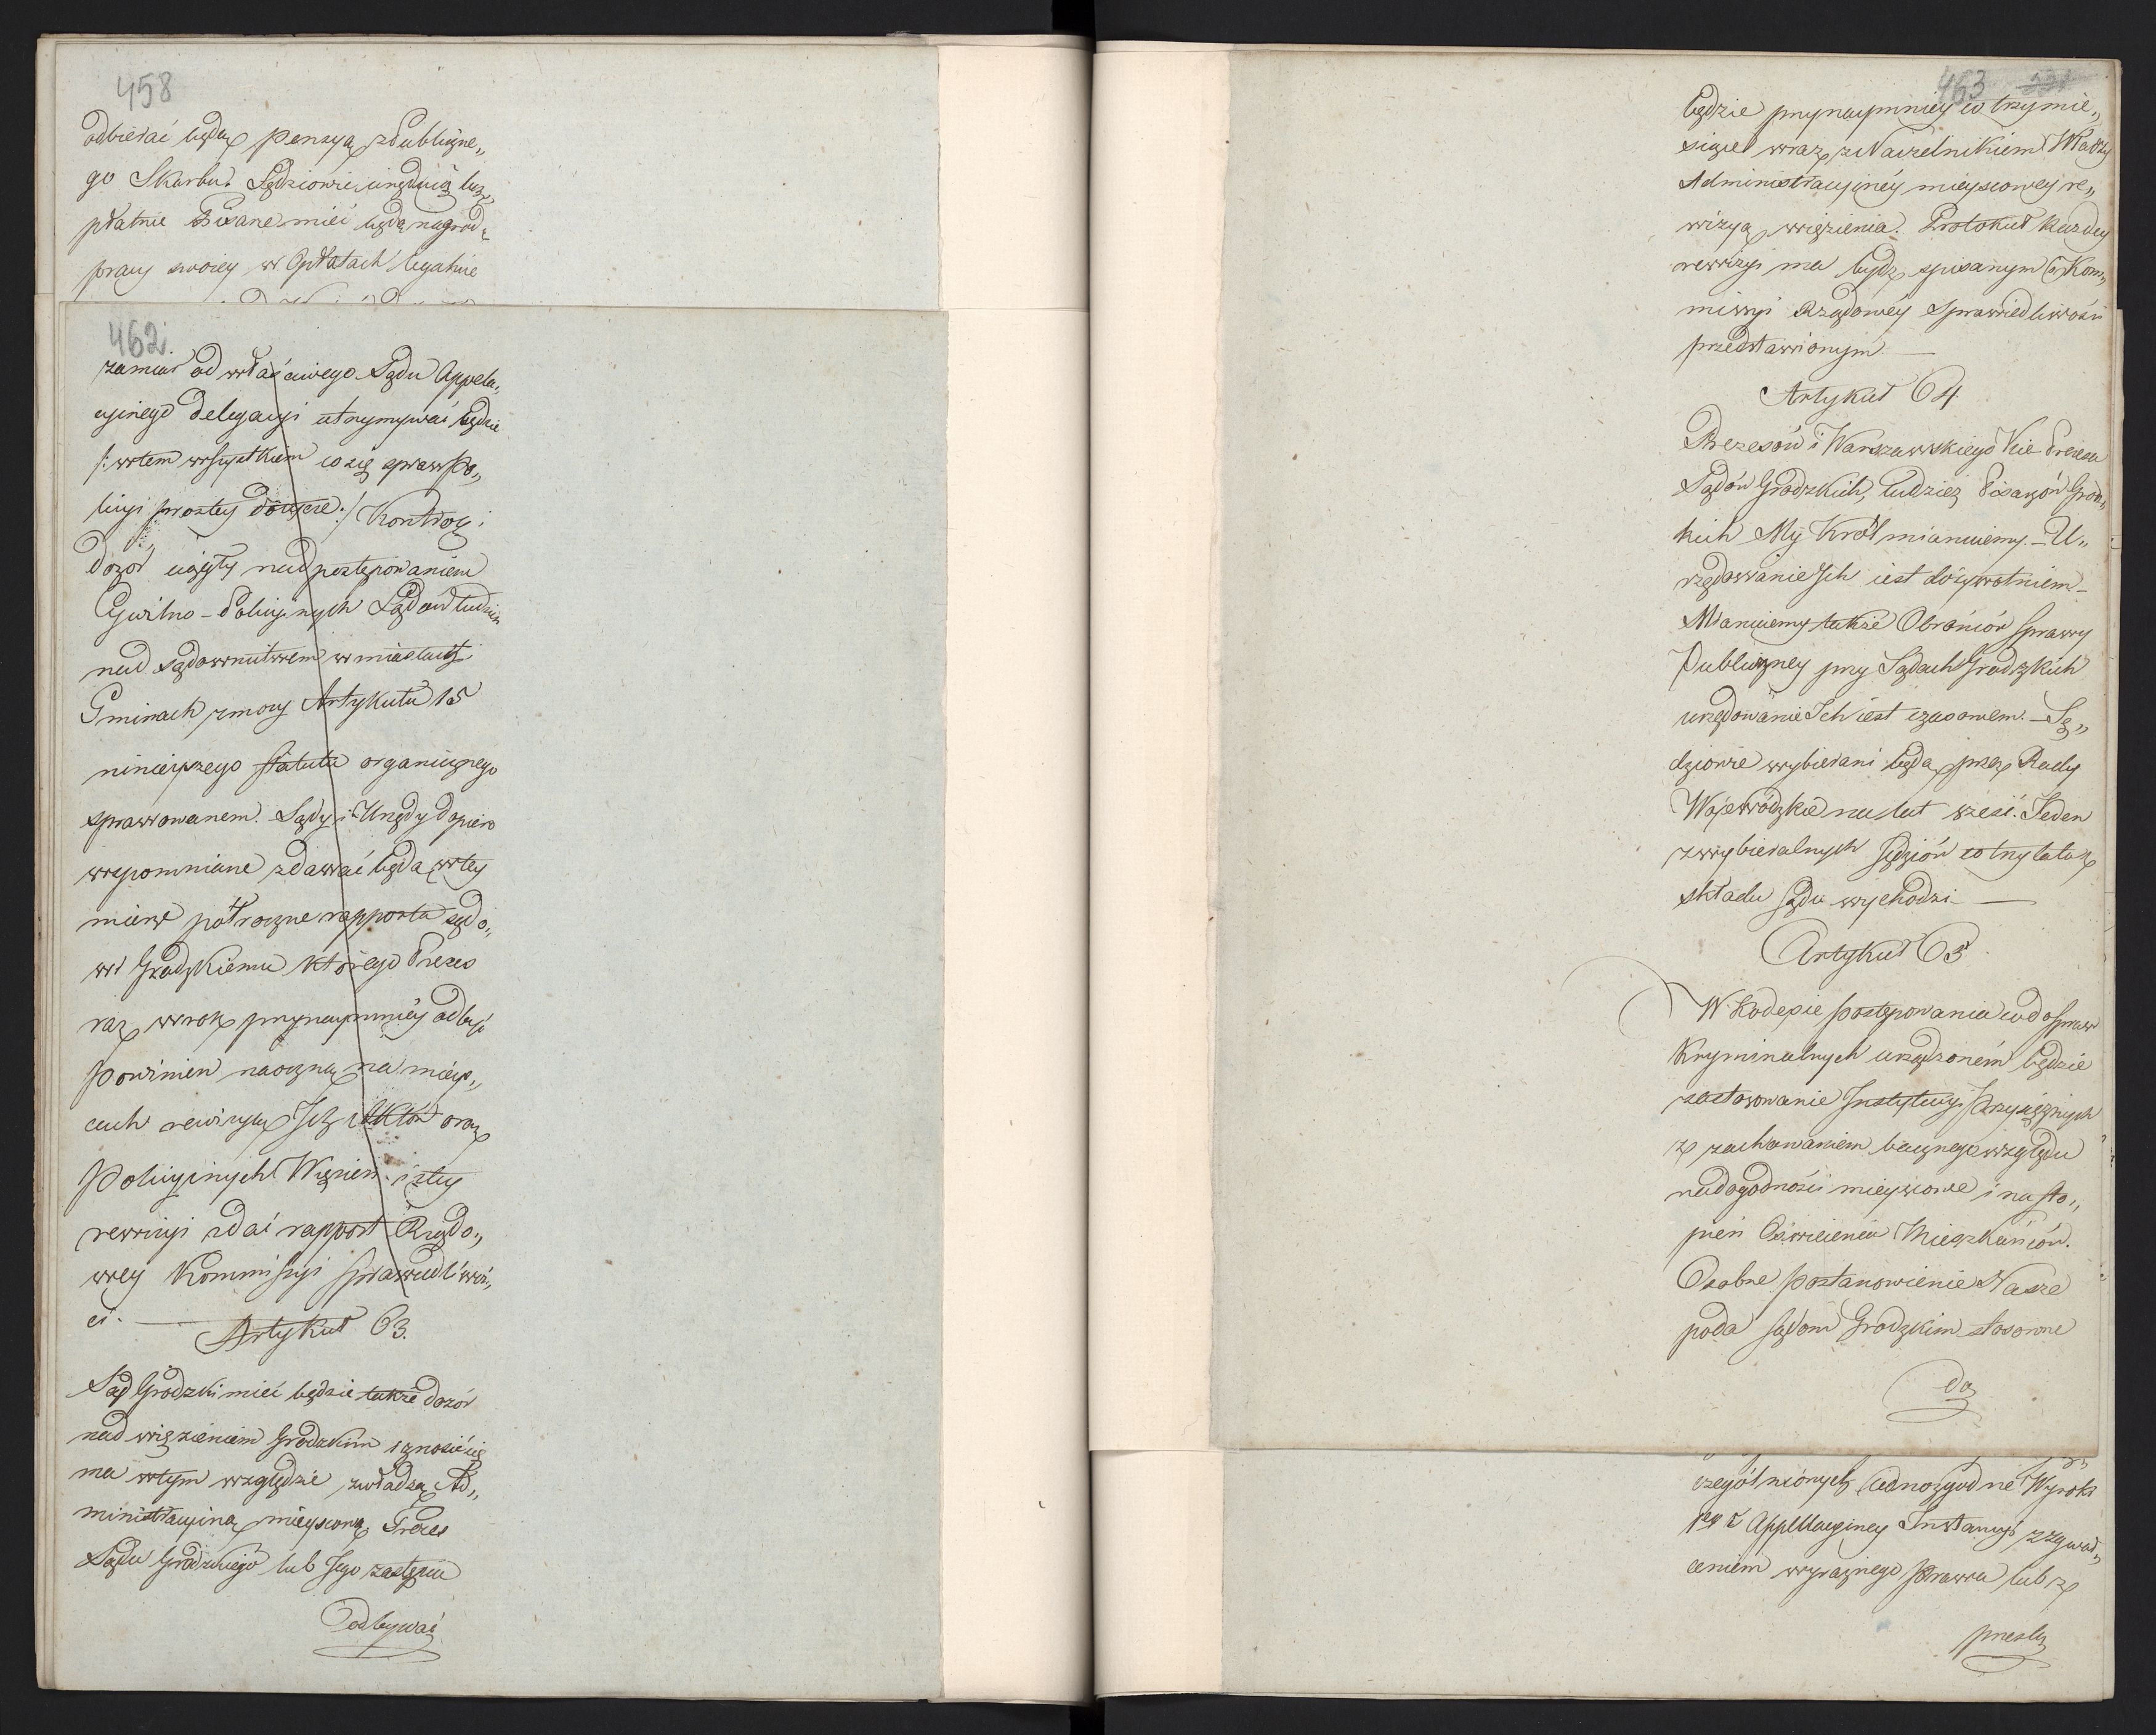 458
odbierać będą pensyą z Publiczne„
go Skarbu. Sędziowie urzędują bez„
płatnie Pisarze mieć będą nagrodę
pracy swoiey w Opłatach legalnie
462.
zamiar od właściwego Sądu Appela„
cyinego delegacyi utrzymywać będzie
/: w tem wszystkiem co się spraw Po„
licyi prostey dotycze :/ Kontrolę i
Dozór ciągły nad postępowaniem
Cywilno-Policyinych Sądów tudzież
nad sądownictwem w miastach i
Gminach z mocy Artykułu 15
ninieyszego statutu organicznego
sprawowanem. Sądy i Urzędy dopiero
wspomniane zdawać będą w tey
mierze półroczne rapporta sądo„
wi Grodzkiemu którego Prezes
raz w rok przynaymniéy odbyć
powinien naoczną na mieys„
cach rewizyą Ich aktów oraz
Policyinych Więzień. i z tey
rewizyi zdać rapport Rządo„
wey Kommissyi sprawiedliwoś„
ci. —
Artykuł 63.
Sąd Grodzki mieć będzie także dozór
nad więzieniem Grodzkim i znosić się
ma w tym względzie z władzą Ad„
ministracyiną mieyscową. Prezes
Sądu Grodzkiego lub Jego zastępca
odbywać
463
będzie przynaymniey co trzy mie„
siące wraz z Naczelnikiem Władzy
Administracyinéy mieyscowey re„
wizyą więzienia. Protokuł każdey
rewizyi ma bydź spisanym i Kom„
missyi Rządowéy Sprawiedliwości
przedstawionym. —
Artykuł 64
Prezesów i Warszawskiego Vice-Prezesa
Sądów Grodzkich, tudzież Pisarzów Grodz„
kich My Król mianuiemy. — U„
rzędowanie Ich iest dożywotniem. —
Mianuiemy także Obrońców sprawy
Publiczney przy Sądach Grodzkich
urzędowanie Ich iest czasowem. — Sę„
dziowie wybierani będą przez Rady
Wojewódzkie na lat sześć. Jeden
z wybieralnych sędziów co trzy lata ze
składu sądu wychodzi. —
Artykuł 65
W Kodexie postępowania co do spraw
Kryminalnych urządzoném będzie
zastosowanie Instytucyi Przysięgłych
z zachowaniem bacznego względu
na dogodności mieyscowe i na sto„
pień Oświecenia Mieszkańców.
Osobne postanowienie Nasze
poda sądom Grodzkim stosowne
do
czególnionych jednozgodne Wyroki
Appellacyiney Instancyi z zgwał„
ceniem wyraźnego Prawa lub z